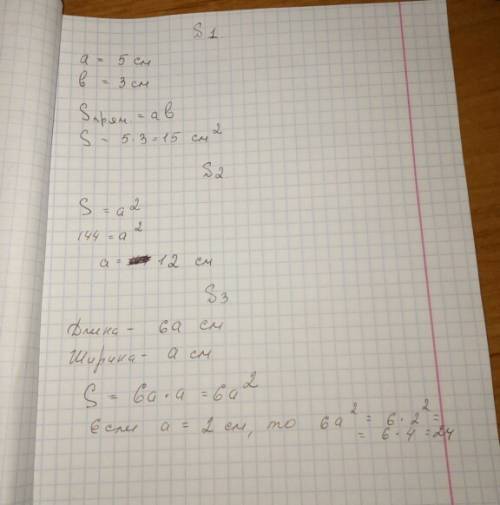 S1
a = 5 см
в = 3 см
Sпрям = aв
S = 5·3=15 см²
S2
S = a²
144 = a²
a = 12 см
S3
Длина - 6a см
Ширина - a см
S = 6a·a = 6a²
Если a = 2 см, то 6a² = 6·2² =
= 6·4 = 24